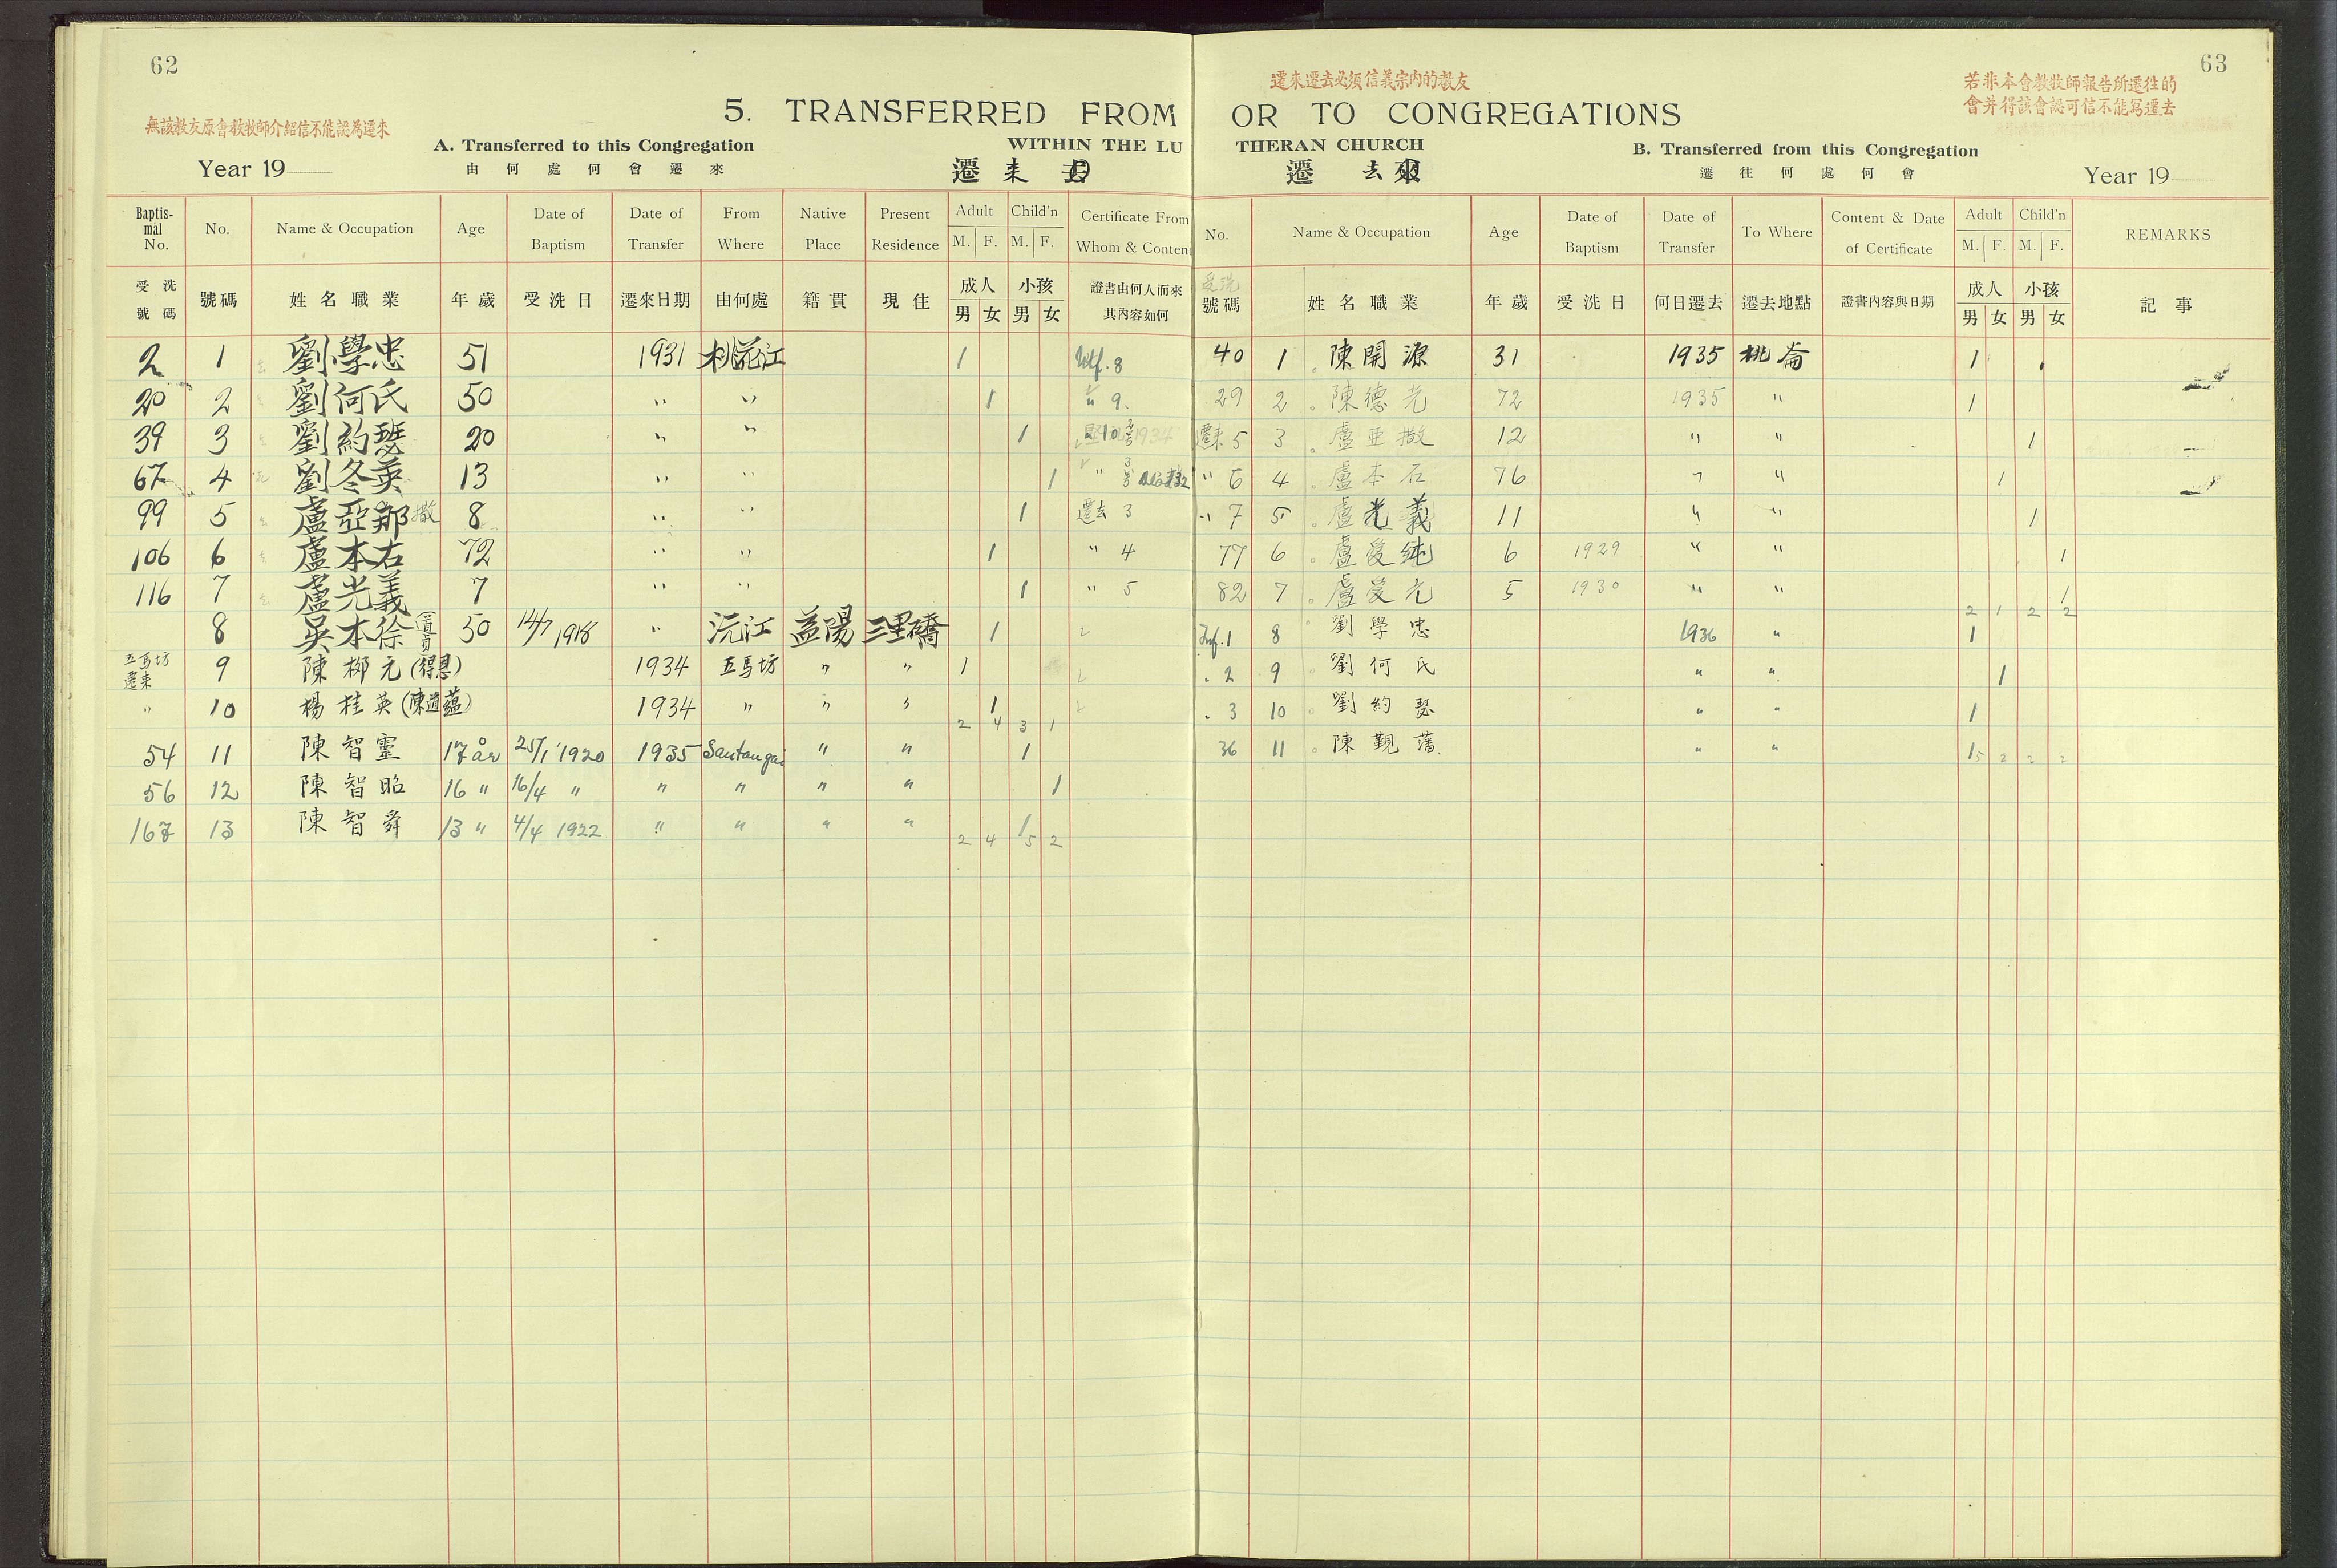 62
無該教友原會教牧師介紹信不能認為遷來
5. TRANSFERRED FROM
A. Transferred to this Congregation
WITHIN THE LU
Year 19
由何處何會遷來
遷 来
Baptismal No. No. Name & Occupation Age Date of Baptism Date of Transfer From Where Native Place Present Residence Adult M. F. Child'n M. F. Certificate From Whom & Content
受洗號碼 號碼 姓名職業 年歲 受洗日 遷來日期 由何處 籍貫 現住 成人 男 女 小孩 男 女 證書由何人而來其內容如何
2 1 劉學忠 51 1931 桃花江 1 8
20 2 劉何氏 50 " " 1 " 9.
39 3 劉約瑟 20 " " 1 10 1934
67 4 劉冬英 13 " " 1 "
99 5 盧亞那 撒 8 " " 1 遷去 3
106 6 盧本右 72 " " 1 " 4
116 7 盧光義 7 " " 1 " 5
8 吳本徐 30 14/7 1918 " 沅江 益陽 三里橋 1
五馬坊遷来 9 陳梛元(得恩) 1934 五馬坊 " " 1
" 10 楊桂英(陳道蘊) 1934 " " " 1
2 4 3 1
54 11 陳智靈 17 år 25/1 1920 1935 Santangai " " 1
56 12 陳智昭 16 " 16/4 " " " " " 1
167 13 陳智舜 13 " 4/4 1922 " " " " 1
2 4 5 2
63
還來遷去必須信義宗內的教友
若非本會教牧師報告所遷往的
會并得該會認可信不能冩遷去
OR TO CONGREGATIONS
THERAN CHURCH
B. Transferred from this Congregation
遷 去
遷往何處何會
Year 19
No. Name & Occupation Age Date of Baptism Date of Transfer To Where Content & Date of Certificate Adult M. F. Child'n M. F. REMARKS
受洗 號碼 姓名職業 年歲 受洗日 何日遷去 遷去地點 證書內容與日期 成人 男 女 小孩 男 女 記事
40 1 陳開源 31 1935 桃崙 1
29 2 陳德光 72 1935 " 1
遷来 5 3 盧亞撒 12 " " 1
" 6 4 盧本右 76 " " 1
" 7 5 盧光義 11 " " 1
77 6 盧愛純 6 1929 " " 1
82 7 盧愛元 5 1930 " " 1
2 1 2 2
Trf. 1 8 劉學忠 1936 " 1
" 2 9 劉何氏 " " 1
" 3 10 劉約瑟 " " 1
36 11 陳觐藩 " " 1
5 2 2 2